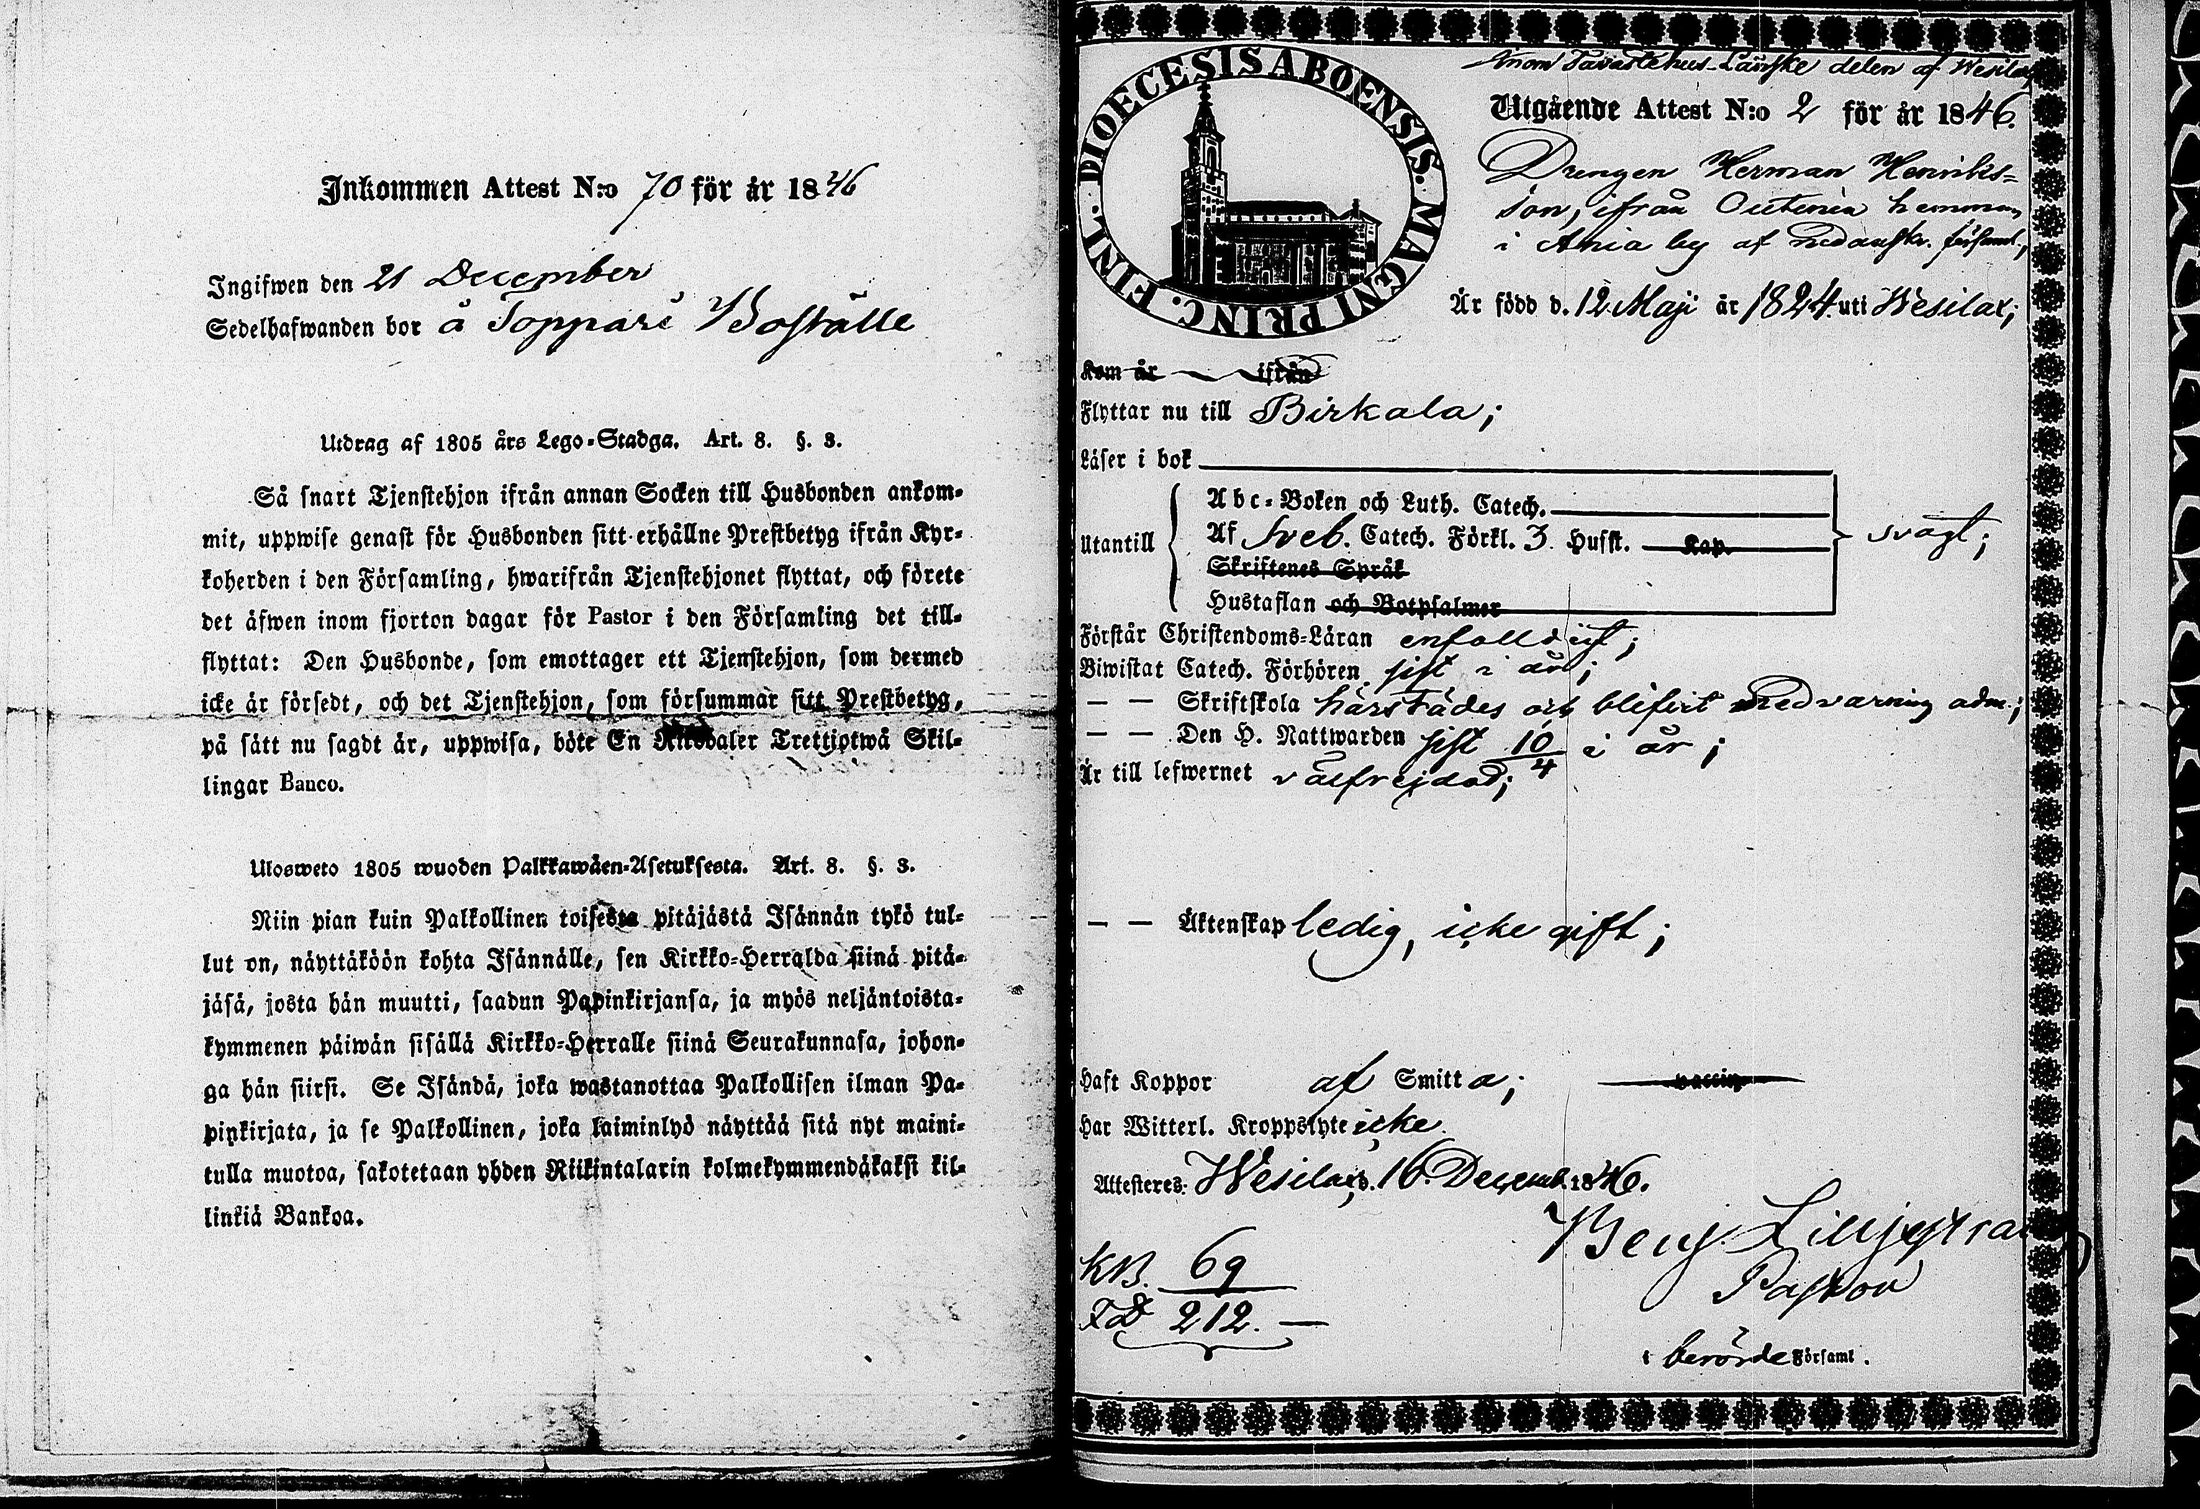 Inkommen Attest N:o 70 för år 1846
Ingifwen den 21 December
Sedelhafwanden bor å Toppari Boställe
Utdrag af 1805 års Lego-Stadga. Art. 8. §. 3.
Så snart Tjenstehjon ifrån annan Socken till Husbonden ankom-
mit, uppwise genast för Husbonden sitt erhållne Prestbetyg ifrån Kyr-
koherden i den Församling, hwarifrån Tjenstehjonet flyttat, och förete
det äfwen inom fjorton dagar för Pastor i den Församling det till-
flyttat: Den Husbonde, som emottager ett Tjenstehjon, som dermed
icke är försedt, och det Tjenstehjon, som försummar sitt Prestbetyg,
på sätt nu sagdt är, uppwisa, böte En Riksdaler Trettjotwå Skil-
lingar Banco.
Ulosweto 1805 wuoden Palkkawäen-Asetuksesta. Art. 8. §. 3.
Niin pian kuin Palkollinen toisesta pitäjästä Isännän tykö tul-
lut on, näyttäköön kohta Isännälle, sen Kirkko-Herralda siinä pitä-
jäsä, josta hän muutti, saadun Papinkirjansa, ja myös neljäntoista-
kymmenen päiwän sisällä Kirkko-Herralle siinä Seurakunnasa, johon-
ga hän siirsi. Se Isändä, joka wastanottaa Palkollisen ilman Pa-
pinkirjata, ja se Palkollinen, joka laiminlyö näyttää sitä nyt maini-
tulla muotoa, sakotetaan yhden Riikintalarin kolmekymmendäkaksi kil-
linkiä Bankoa.
DIOECESIS ABOENSIS. MAGNI PRINC. FINL.
inom Tavastehus-Länske delen af Wesilax
Utgående Attest N:o 2 för år 1846.
Drengen Herman Henriks-
son, ifrån Outinen hemman
i Ania by af nedanskr. församl.,
Är född d. 12 Maji år 1824 uti Wesilax;
Kom år ifrån
Flyttar nu till Birkala;
Läser i bok
Abc-Boken och Luth. Catech.
Utantill Af Sveb. Catech. Förkl. 3 Hufst. Kap. svagt;
Skriftenes Språk
Hustaflan och Botpsalmer
Förstår Christendoms-Läran enfalldigt;
Biwistat Catech. Förhören sist i år;
— — Skriftskola härstädes och blifvit med varning adm.;
— — Den H. Nattwarden sist 10/4 i år;
Är till lefwernet välfrejdad;
— — Äktenskap ledig, icke gift;
Haft Koppor af Smitta; vaccin
Har Witterl. Kroppslyte icke.
Attesteres. Wesilax d. 16 Decemb. 1846.
Benj. Lilljestrand
Pastor
i berörde Församl.
KB. 69
FB 212. —